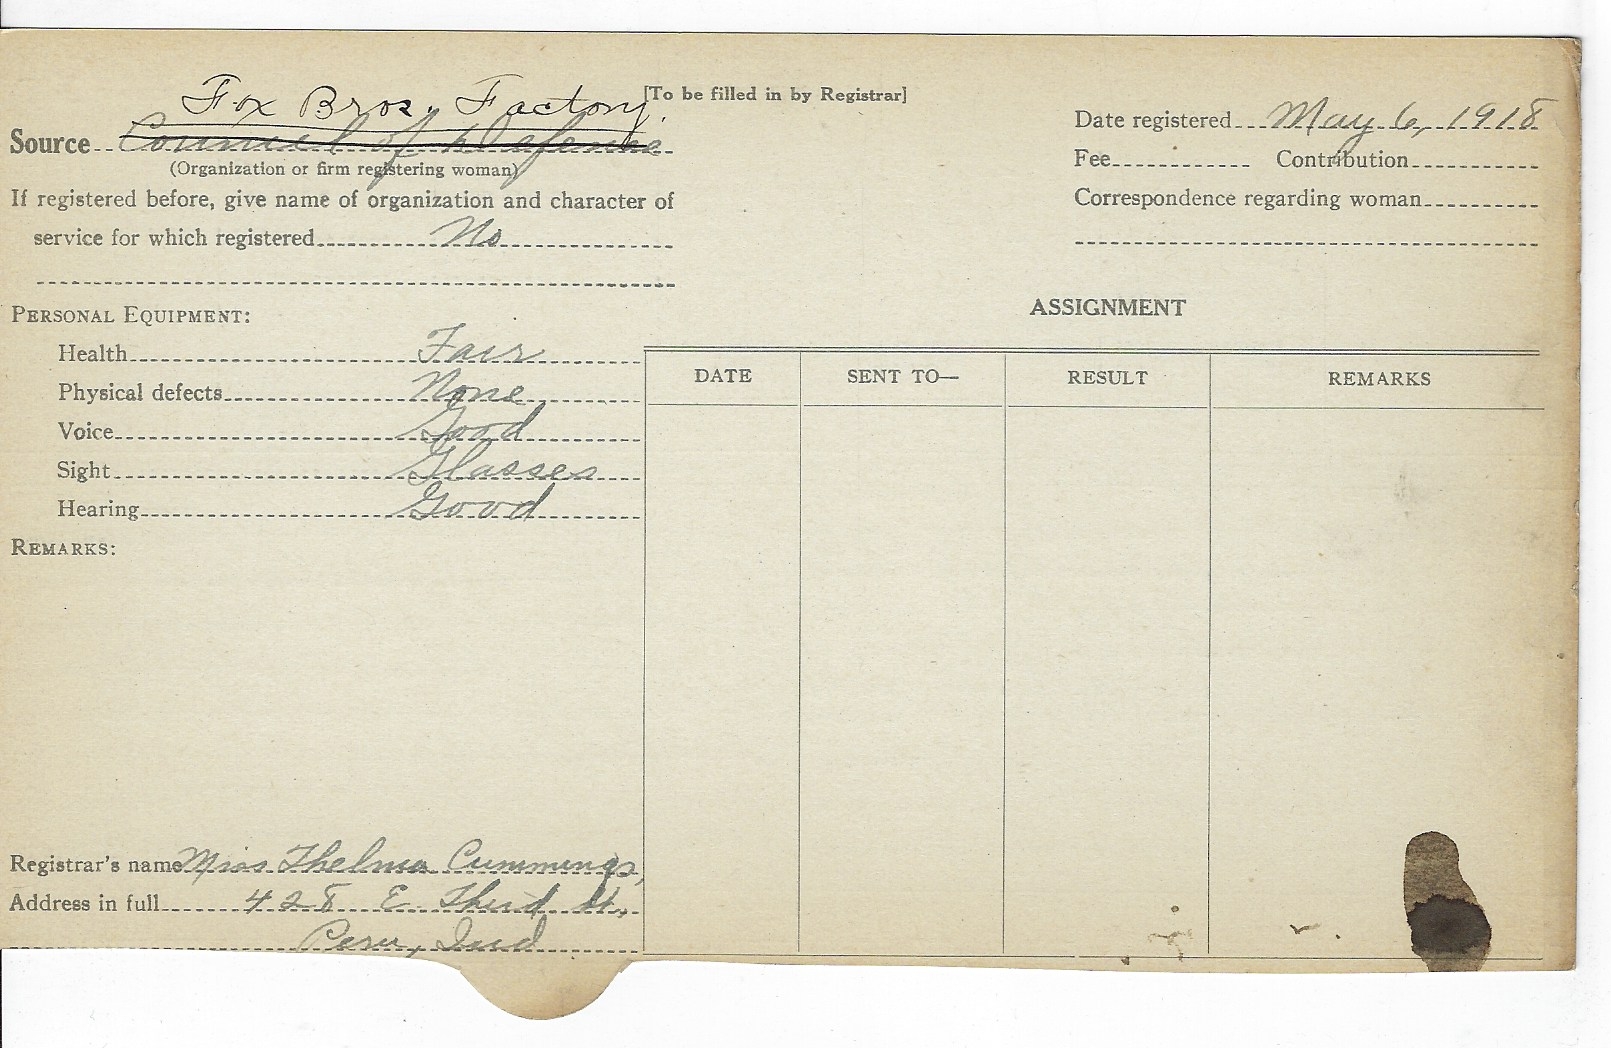 Fox Bros. Factory.
[To be filled in by Registrar]
Source Council of Defense
(Organization or firm registering woman)
If registered before, give name of organization and character of
service for which registered No
Date registered May 6, 1918
Fee Contribution
Correspondence regarding woman
PERSONAL EQUIPMENT:
Health Fair
Physical defects None
Voice Good
Sight Glasses
Hearing Good
REMARKS:
ASSIGNMENT
DATE SENT TO— RESULT REMARKS
Registrar's name Miss Thelma Cummings,
Address in full 428 E. Third St.,
Peru, Ind